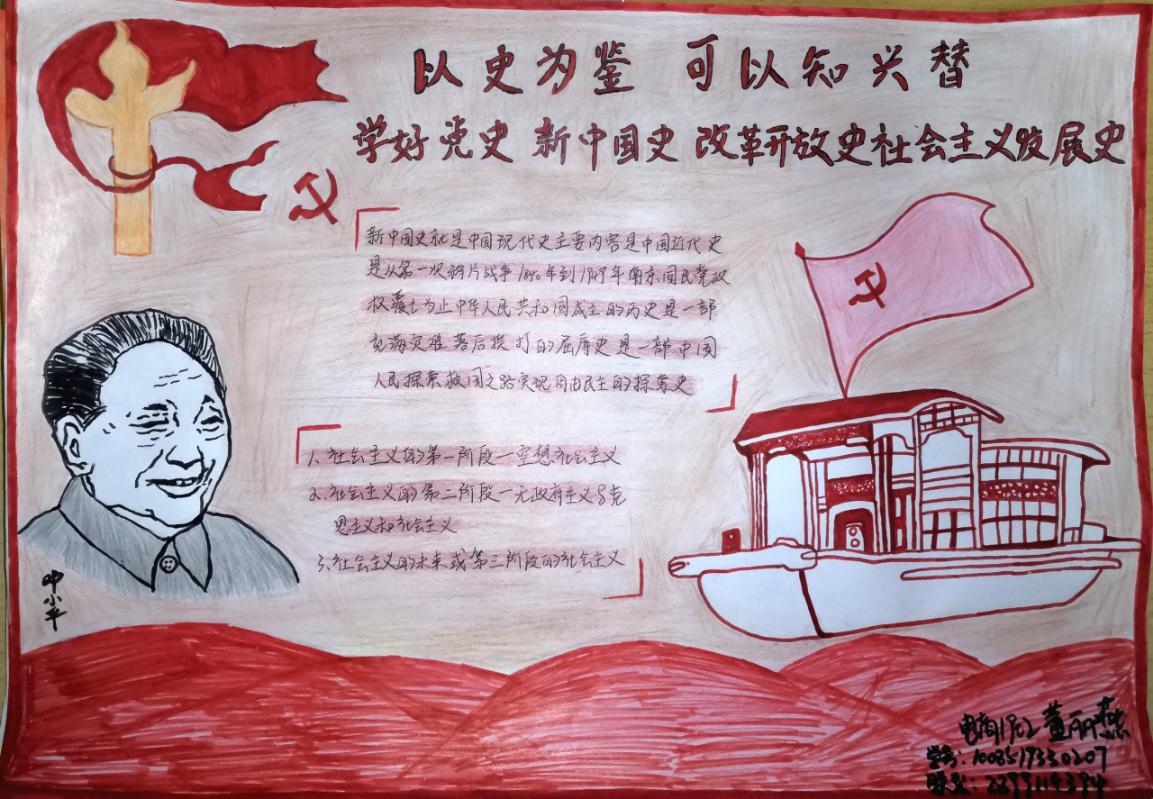 以史为鉴 可以知兴替
学好党史 新中国史 改革开放史社会主义发展史
新中国史就是中国现代史主要内容是中国近代史
是从第一次鸦片战争1840年到1949年南京国民党政
权覆亡为止中华人民共和国成立的历史是一部
灾难落后挨打的屈辱史是一部中国
人民探索救国之路实现自由民主的探索史
1.社会主义的第一阶段一空想社会主义
2.社会主义的第二阶段一无政府主义与克
思主义和社会主义
3.社会主义的未来或第三阶段的社会主义
小平
电商1902 董丽燕
学号:1003517330207
2299114394